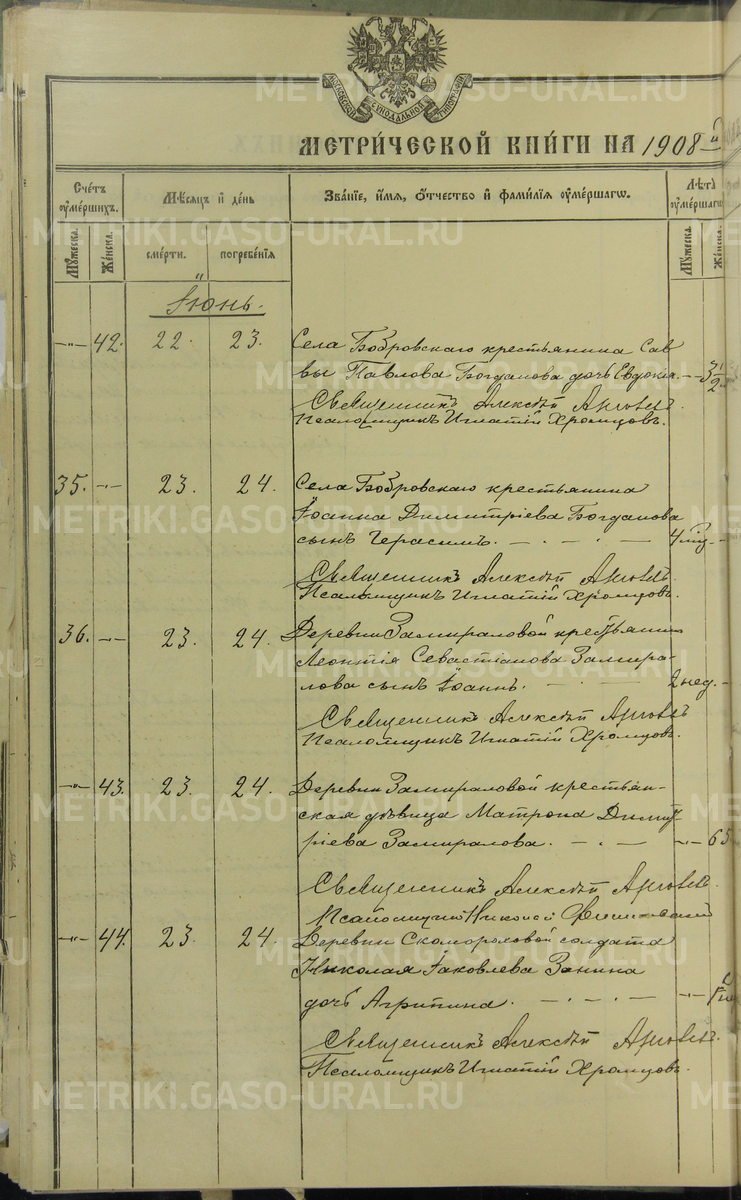 МОСКОВСКОЙ СѴНОДАЛЬНОЙ ТИПОГРАФІИ
МЕТРИ́ЧЕСКОЙ КНИ́ГИ НА 1908й
Сче́тъ ᲂуме́ршихъ.
Мѣ́сяцъ и҆ де́нь
Зва́нїе, и҆́мя, ѻ҆́тчество и҆ фами́лїя ᲂуме́ршагѡ.
Лѣта̀ ᲂуме́ршагѡ
Мꙋ́жеска.
Же́нска.
сме́рти.
погребе́нїя
Мꙋ́жеска.
Же́нска.
Іюнь.
—"— 42. 22. 23. Села Бобровскаго крестьянина Сав-
вы Павлова Богданова дочь Евдокія. — 3 1/2
Священникъ Алексѣй
Псаломщикъ Игнатій Хромцовъ.
35. —"— 23. 24. Села Бобровскаго крестьянина
Іоанна Димитріева Богданова
сынъ Герасимъ. — . — . — 4 —
Священникъ Алексѣй
Псаломщикъ Игнатій Хромцовъ.
36. —"— 23. 24. Деревни Замираловой крестьянина
Леонтія Севастіанова Замира-
лова сынъ Іоаннъ. — . — 2 нед. —
Священникъ Алексѣй
Псаломщикъ Игнатій Хромцовъ.
—"— 43. 23. 24. Деревни Замираловой крестьян-
ская дѣвица Матрона Димит-
ріева Замиралова. — . — —"— 65
Священникъ Алексѣй
Псаломщикъ Николай
—"— 44. 23. 24. Деревни Скомороховой солдата
Николая Іаковлева Зонина
дочь Агрипина. — . — . — —"— 1
Священникъ Алексѣй
Псаломщикъ Игнатій Хромцовъ.
METRIKI.GASO-URAL.RU